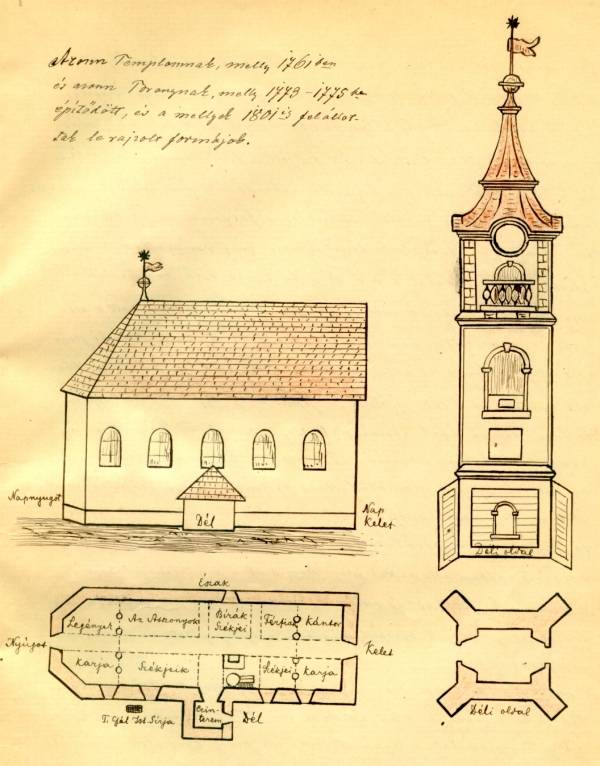 Azonn Templomnak, melly 1761 ben
és azonn Toronynak, melly 1773-1775 be
építődött, és a mellyek 1801 is felállot-
tak le rajzolt formájok.
Napnyugot
Dél
Nap
Kelet
Déli oldal
Észak
Legények
Az Asszonyok
Birák
Székjei
Férfiak
Kántor
Nyúgot
Kelet
Karja
Székjeik
Székjei
Karja
Czin-
terem
Dél
Sírja
Déli oldal